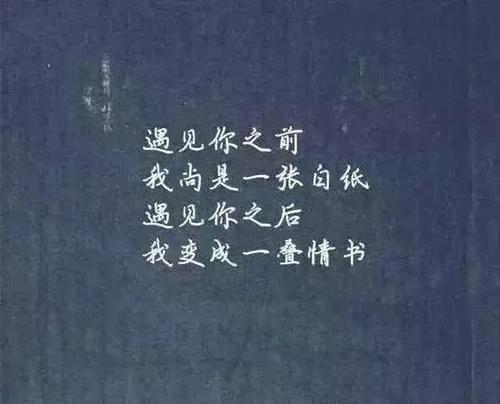 遇见你之前
我尚是一张白纸
遇见你之后
我变成一叠情书